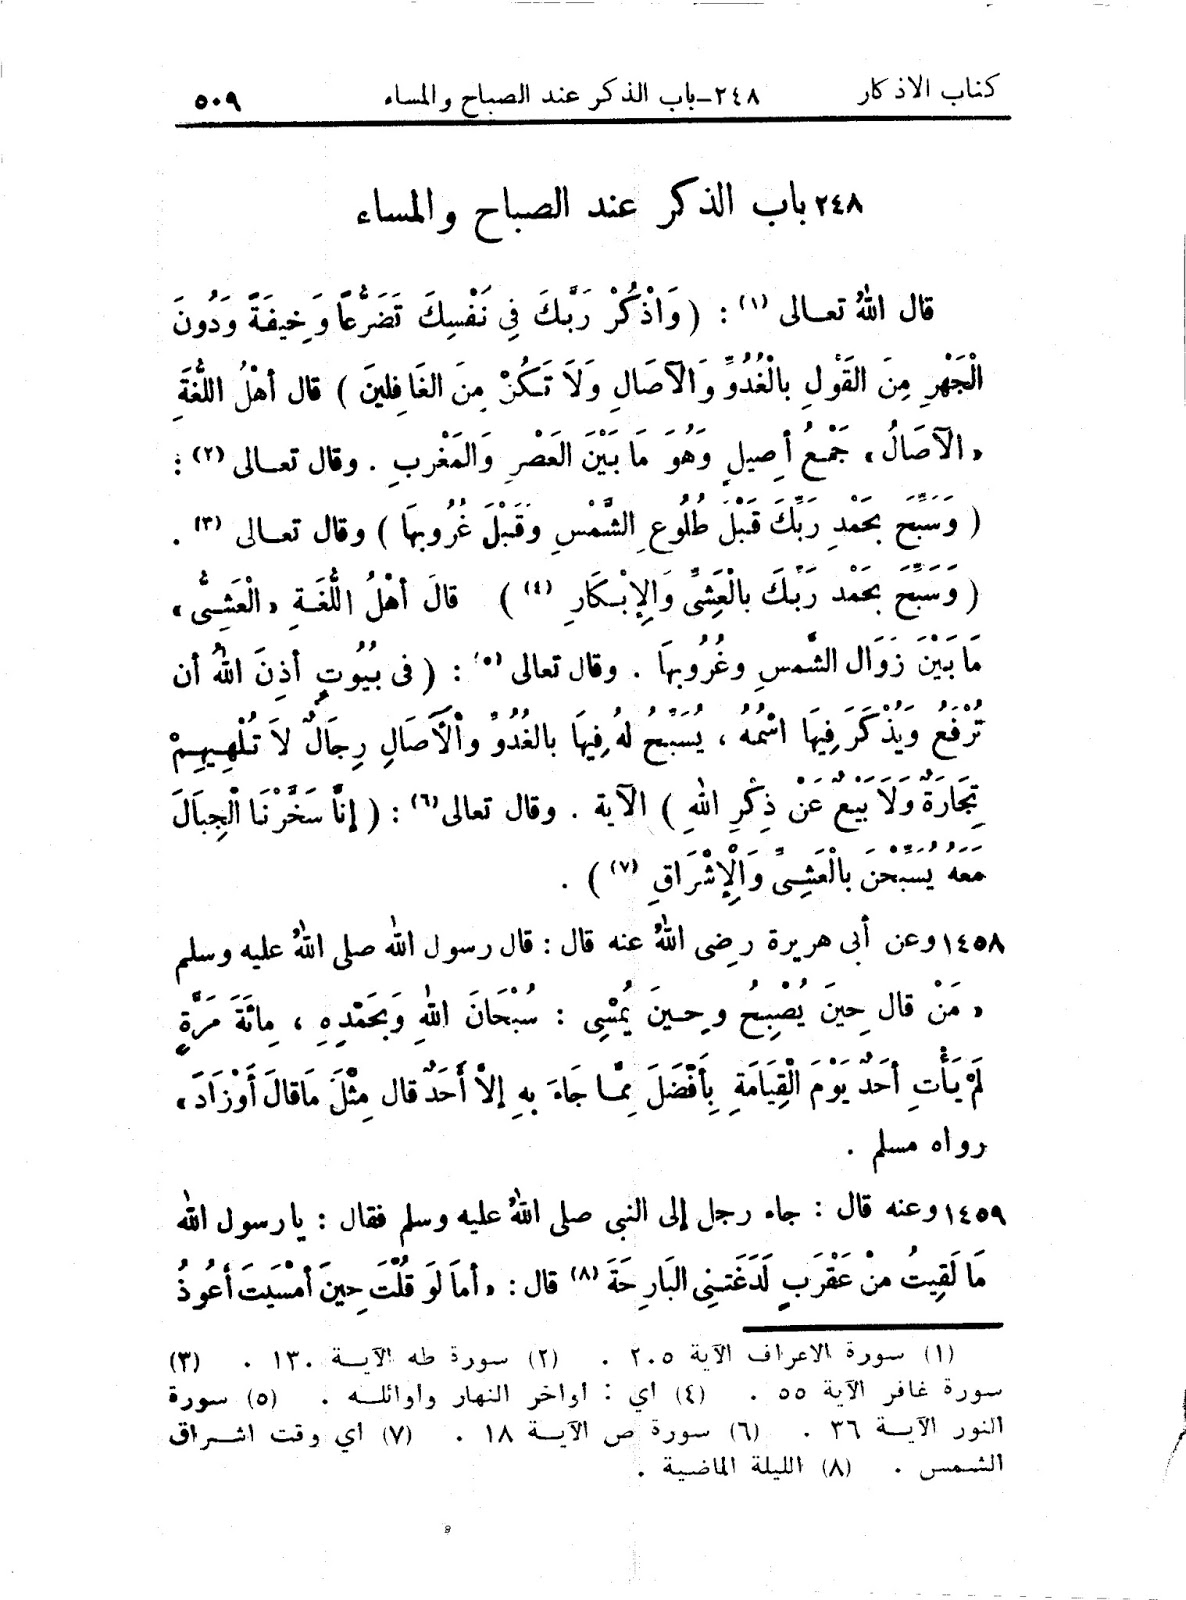 كتاب الاذكار ٢٤٨-باب الذكر عند الصباح والمساء ٥٠٩
٢٤٨ باب الذكر عند الصباح والمساء
قال اللهُ تعالى (١) : ( وَاذْكُرْ رَبَّكَ فِي نَفْسِكَ تَضَرُّعاً وَخِيفَةً وَدُونَ
الْجَهْرِ مِنَ القَوْلِ بِالْغُدُوِّ وَالآصَالِ وَلَا تَكُنْ مِنَ الغَافِلِينَ ) قال أهْلُ اللُّغَةِ
« الآصَالُ » جَمْعُ أصِيلٍ وَهُوَ مَا بَيْنَ العَصْرِ وَالمَغْرِبِ . وقال تعالى (٢) :
( وَسَبِّحْ بِحَمْدِ رَبِّكَ قَبْلَ طُلُوعِ الشَّمْسِ وَقَبْلَ غُرُوبِهَا ) وقال تعالى (٣) .
( وَسَبِّحْ بِحَمْدِ رَبِّكَ بِالْعَشِيِّ وَالإِبْكَارِ (٤) ) قالَ أهْلُ اللُّغَةِ « الْعَشِىُّ »
مَا بَيْنَ زَوَالِ الشَّمْسِ وغُرُوبِهَا . وقال تعالى (٥) : ( فى بُيُوتٍ أذِنَ اللهُ أن
تُرْفَعُ وَيُذْكَرَ فِيهَا اسْمُهُ ، يُسَبِّحُ لهُ فِيهَا بالغُدُوِّ وَالْآصَالِ رِجَالٌ لَا تُلْهِيهِمْ
تِجَارَةٌ وَلَا بَيْعٌ عَنْ ذِكْرِ اللهِ ) الآية . وقال تعالى (٦) : ( إنَّا سَخَّرْنَا الْجِبَالَ
مَعَهُ يُسَبِّحْنَ بِالْعَشِيِّ وَالْإِشْرَاقِ (٧) ) .
١٤٥٨ وعن أبى هريرة رضى اللهُ عنه قال : قال رسول الله صلى اللهُ عليه وسلم
« مَنْ قال حِينَ يُصْبِحُ وحِينَ يُمْسِى : سُبْحَانَ اللهِ وَبِحَمْدِهِ ، مِائَةَ مَرَّةٍ
لَمْ يَأْتِ أحَدٌ يَوْمَ الْقِيَامَةِ بِأَفْضَلَ مِمَّا جَاءَ بهِ إلاَّ أَحَدٌ قال مِثْلَ مَا قالَ أَوْ زَادَ »
رواه مسلم .
١٤٥٩ وعنه قال : جاء رجل إلى النبى صلى اللهُ عليه وسلم فقال : يا رسول الله
مَا لَقِيتُ مِنْ عَقْرَبٍ لَدَغَتْنِى البَارِحَةَ (٨) قال : « أمَا لَو قُلْتَ حِينَ أمْسَيْتَ أعُوذُ
(١) سورة الاعراف الآية ٢٠٥ . (٢) سورة طه الآية ١٣٠ . (٣)
سورة غافر الآية ٥٥ . (٤) اي : اواخر النهار واوائله . (٥) سورة
النور الآية ٣٦ . (٦) سورة ص الآية ١٨ . (٧) اي وقت اشراق
الشمس . (٨) الليلة الماضية .